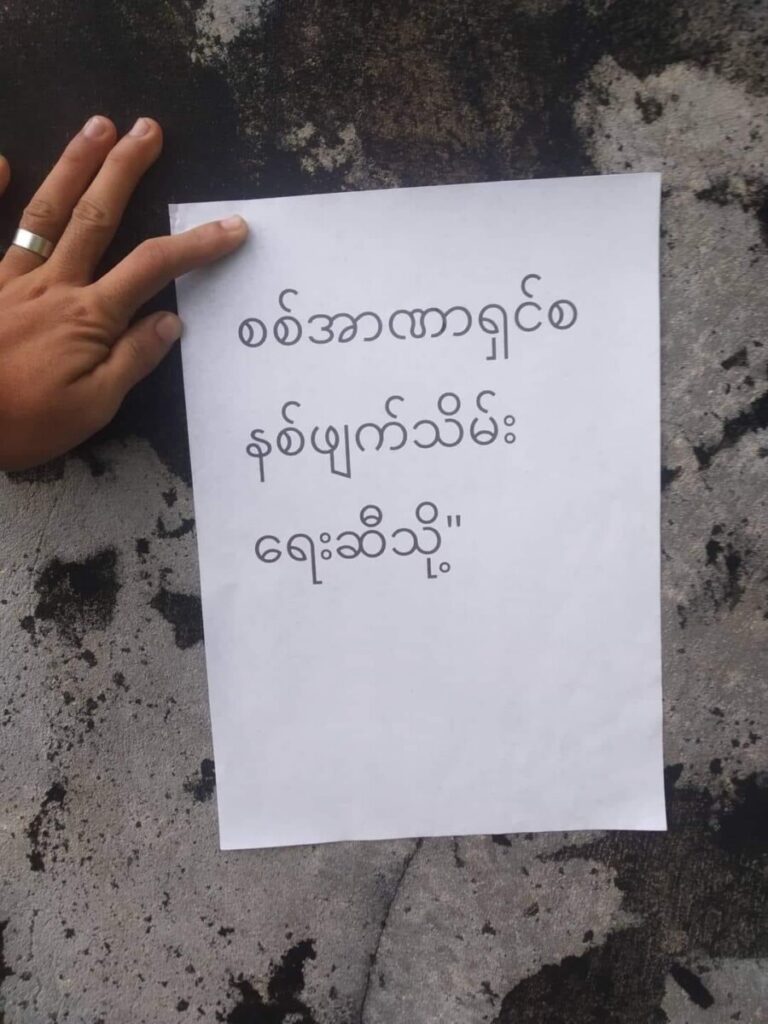 စစ်အာဏာရှင်စ
နစ်ဖျက်သိမ်း
ရေးဆီသို့"